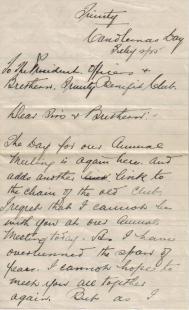 Trinity
Candlemas Day
Feby 2/05
To The President Officers &
Brethern. Trinity Benefit Club.
Dear Sirs & Brethern:-
The Day for our Annual
Meeting is again here. and
adds another link to
the chain of the old Club.
I regret that I cannot be
with you at our Annual
Meeting today. As I have
overrunned the span of
years. I cannot hope to
meet you all together
again. But as I